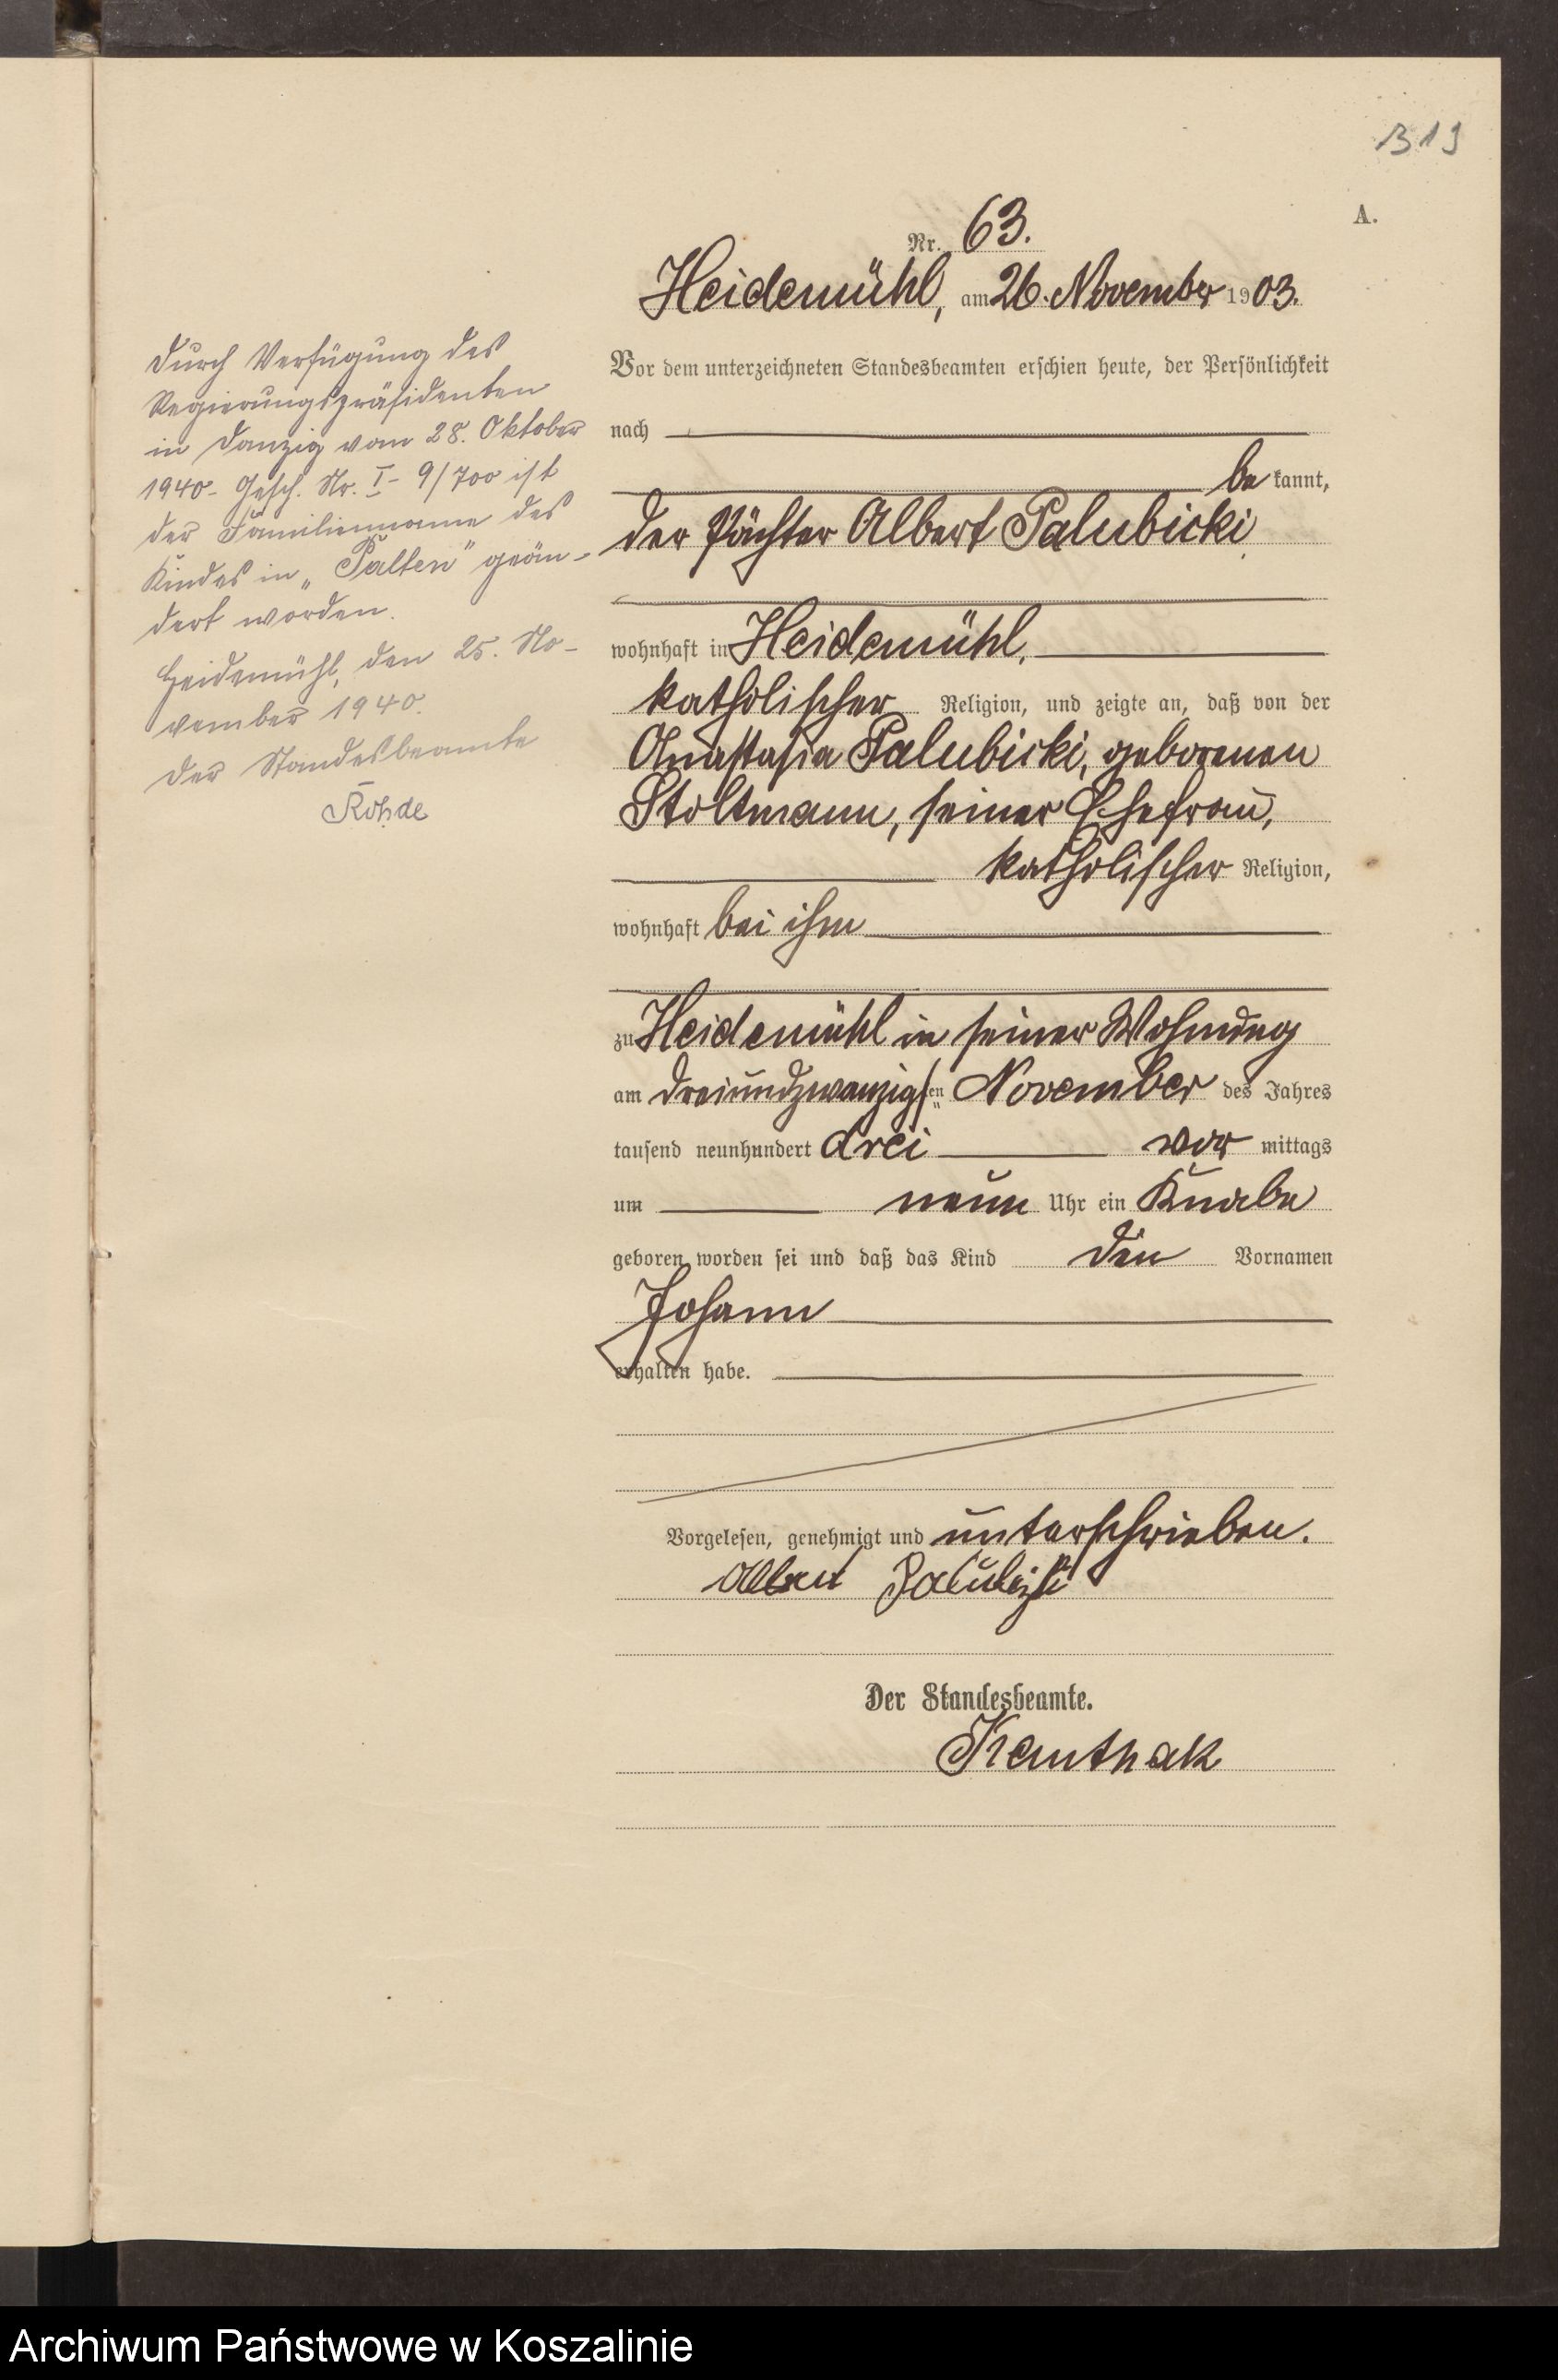 319
A.
Nr. 63.
Heidemühl, am 26. November 1903.
Vor dem unterzeichneten Standesbeamten erschien heute, der Persönlichkeit
nach
be kannt,
der Pächter Albert Palubicki
wohnhaft in Heidemühl,
katholischer Religion, und zeigte an, daß von der
Anastasia Palubicki, geborenen
Stoltmann, seiner Ehefrau,
katholischer Religion,
wohnhaft bei ihm
zu Heidemühl in seiner Wohnung
am dreiundzwanzigsten November des Jahres
tausend neunhundert drei vor mittags
um neun Uhr ein Knabe
geboren worden sei und daß das Kind den Vornamen
Johann
erhalten habe.
Vorgelesen, genehmigt und unterschrieben.
Albert Palubizki
Der Standesbeamte.
Durch Verfügung des
Regierungspräsidenten
in Danzig vom 28. Oktober
1940 - Gesch. Nr. I - 9/700 ist
der Familienname des
Kindes in „Palten" geän-
dert worden.
Heidemühl, den 25. No-
vember 1940.
Der Standesbeamte
Rohde
Archiwum Państwowe w Koszalinie